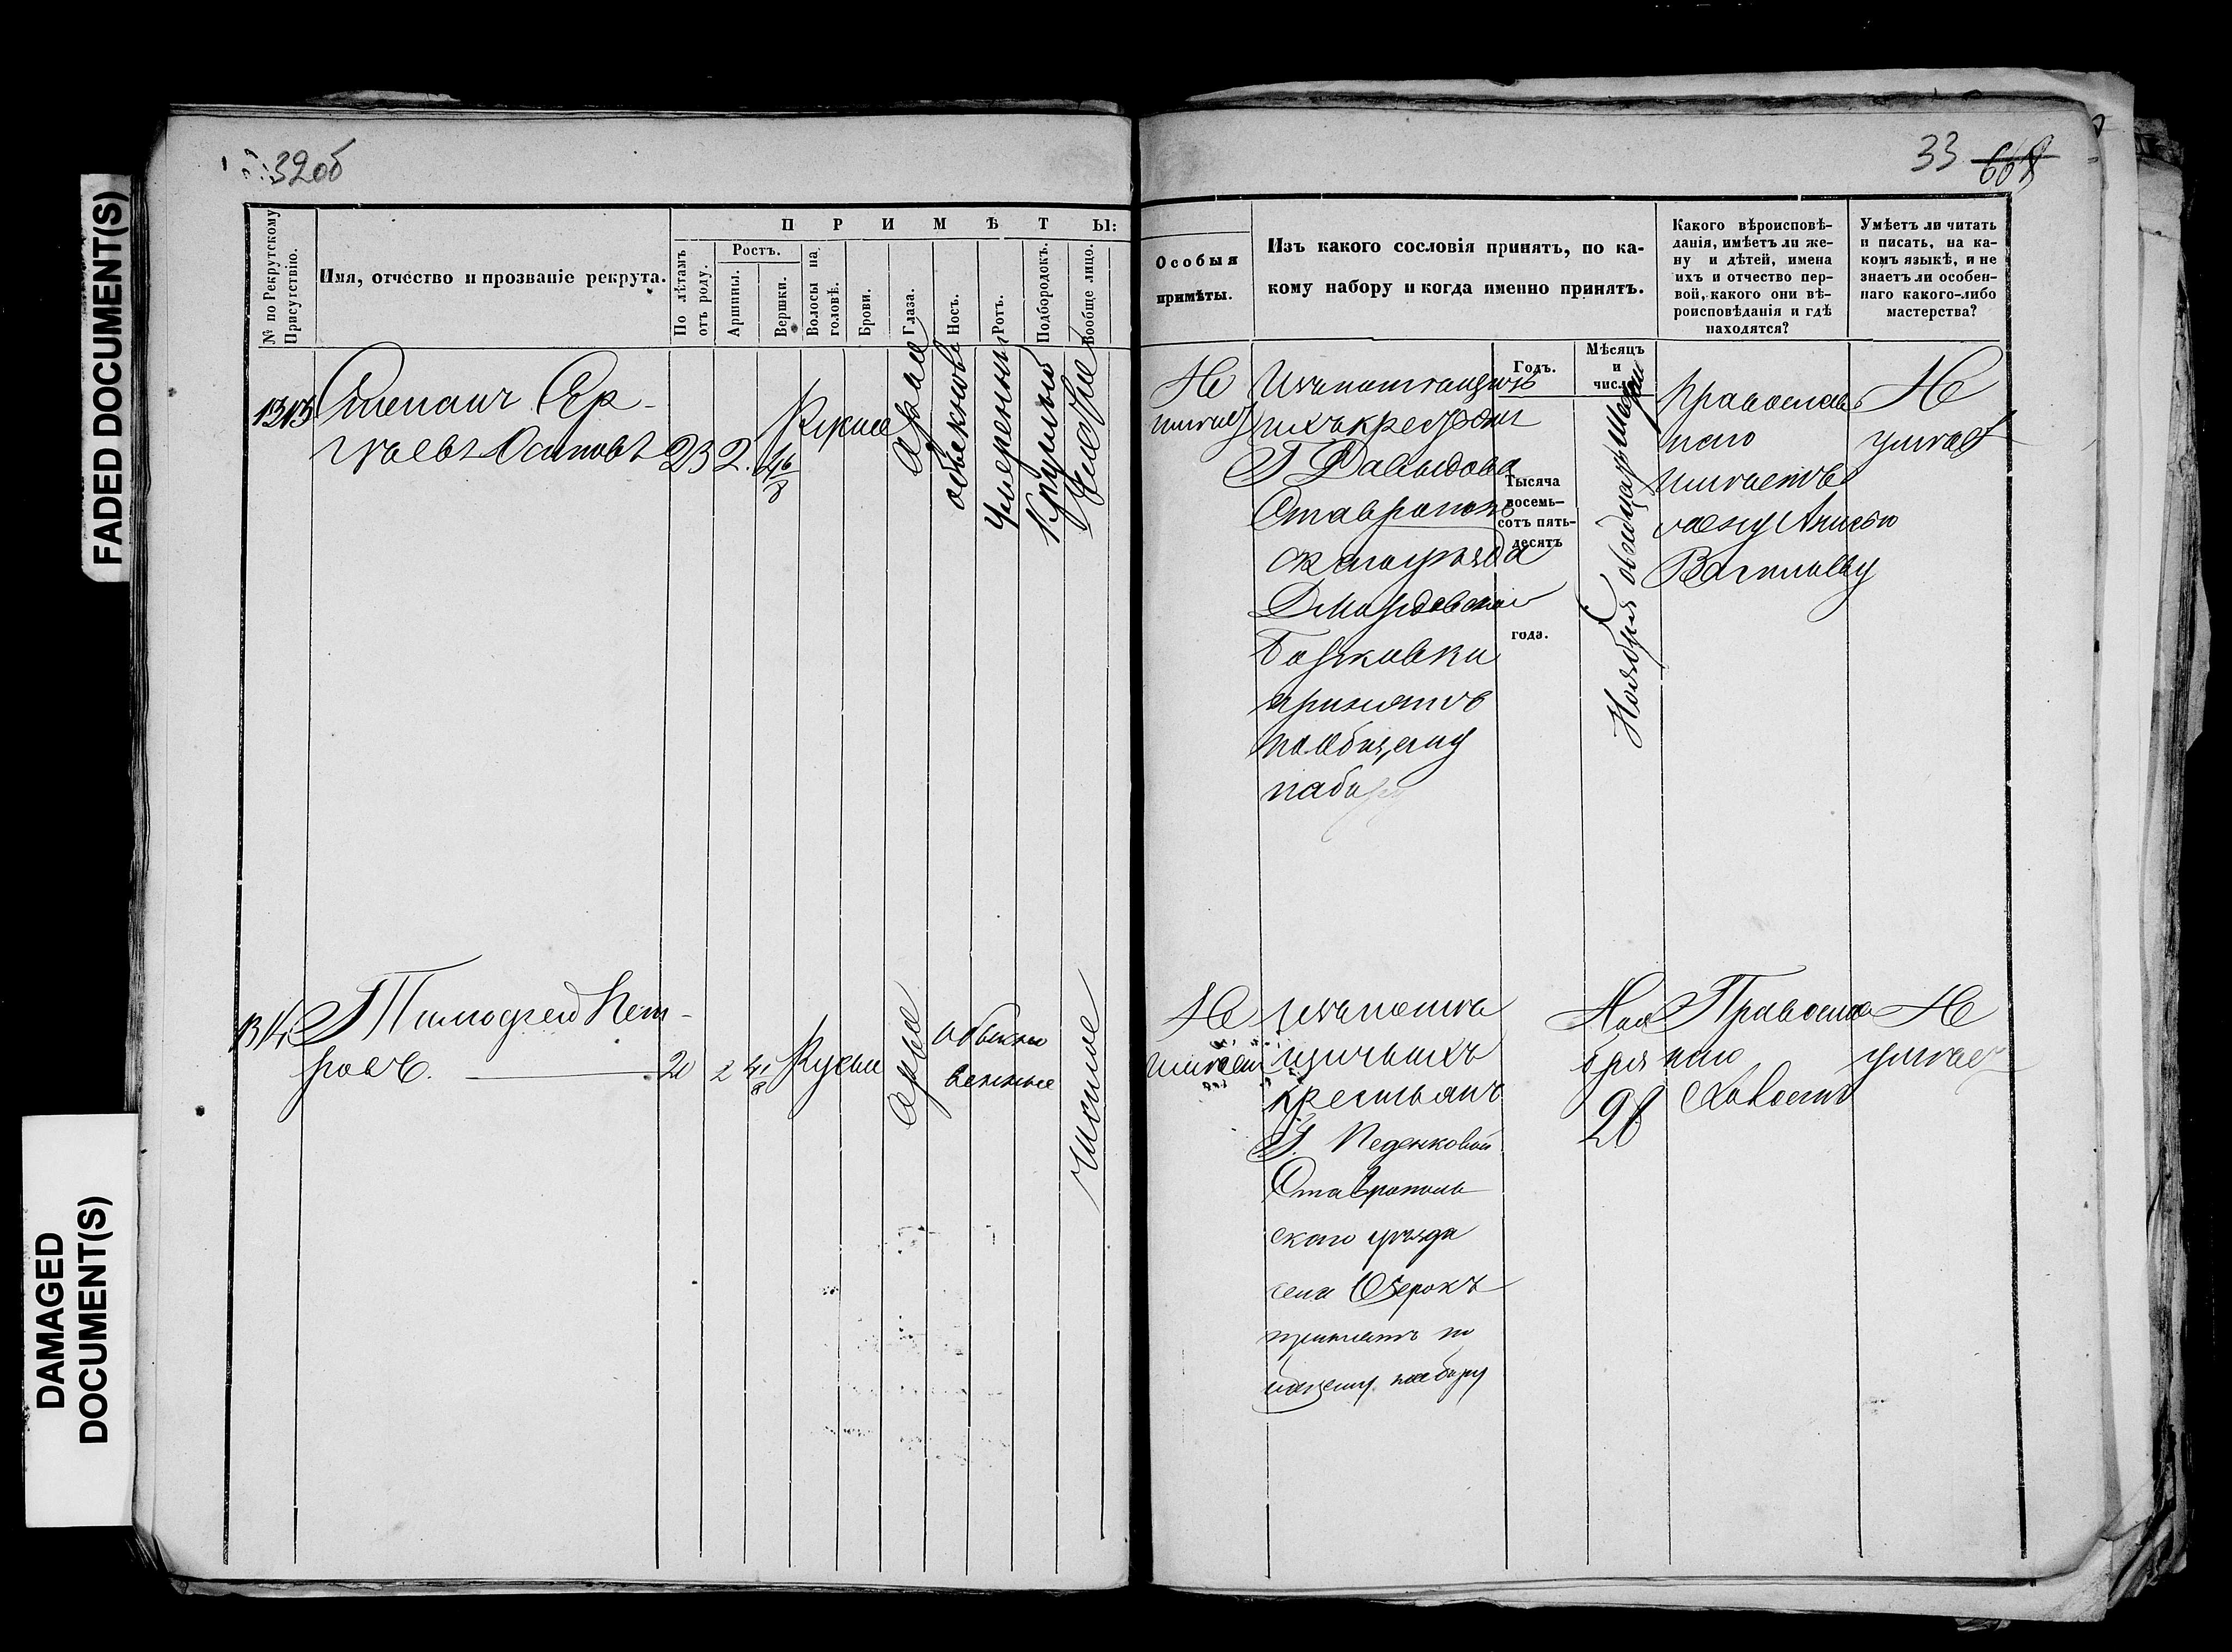 FADED DOCUMENT(S)
DAMAGED
DOCUMENT(S)
32об
№ по Рекрутскому
Присутствію.
Имя, отчество и прозваніе рекрута.
П Р И М Ѣ Т Ы:
По лѣтамъ
отъ роду.
Ростъ.
Аршины.
Вершки.
Волосы на
головѣ.
Брови.
Глаза.
Носъ.
Ротъ.
Подбородокъ.
Вообще лицо.
Степанъ Сер-
гѣевъ Осиповъ 23 2.
Русые
Карые
обыкнов
Умеренный
Круглый
Чистые
Тимофей Пет-
ровъ. 20 2
Русые
Карые
Обыкно
венные
Чистые
33 668
Особыя
примѣты.
Изъ какого сословія принятъ, по ка-
кому набору и когда именно принятъ.
Какого вѣроисповѣ-
данія, имѣетъ ли же-
ну и дѣтей, имена
ихъ и отчество пер-
вой, какого они вѣ-
роисповѣданія и гдѣ
находятся?
Умѣетъ ли читать
и писать, на ка-
комъ языкѣ, и не
знаетъ ли особен-
наго какого-либо
мастерства?
Годъ.
Мѣсяцъ
и
число.
Не
имѣетъ
Изъ помѣщичь
ихъ крестьянъ
Г Давыдова
Ставрополь
скаго уѣзда
Борковки
принятъ
по общему
набору
Тысяча
восемь-
сотъ пять-
десятъ
года.
Ноября двадцать
Православ
наго
имѣетъ
жену Анисью
Васильеву
Не
умѣетъ
Не
имѣетъ
Изъ помѣ
щичьихъ
крестьянъ
Г.
Ставрополь
скаго уѣзда
села Озерокъ
принятъ по
общему набору
Ноя
бря
Правосла
наго
Холостъ
Не
умѣетъ